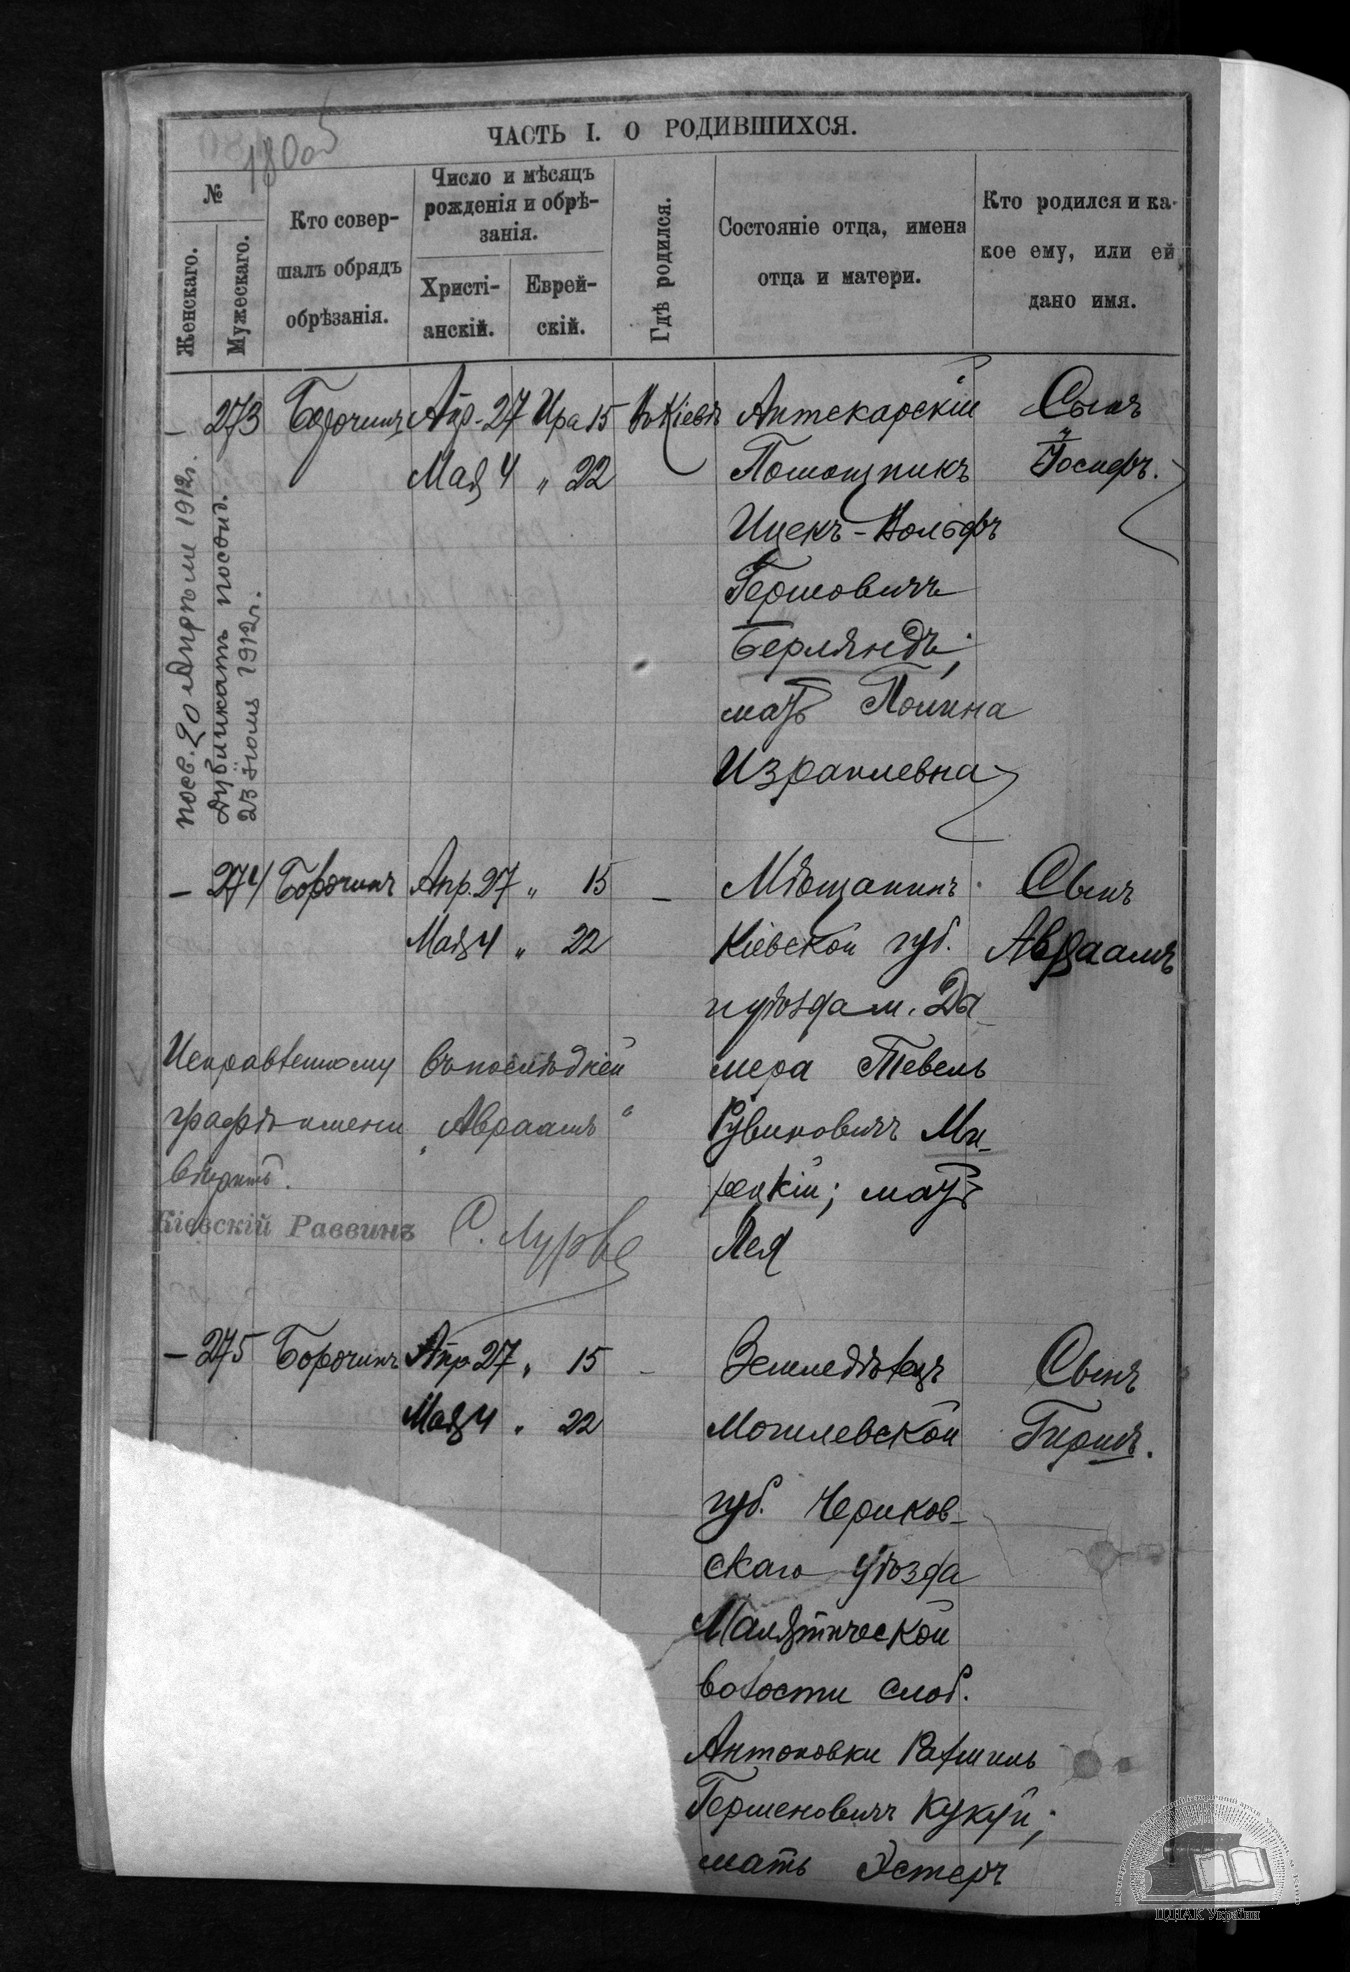 ЧАСТЬ I. О РОДИВШИХСЯ.
№
Женскаго.
Мужескаго.
Кто совер-
шалъ обрядъ
обрѣзанія.
Число и мѣсяцъ
рожденія и обрѣ-
занія.
Христі-
анскій.
Еврей-
скій.
Гдѣ родился.
Состояніе отца, имена
отца и матери.
Кто родился и ка-
кое ему, или ей
дано имя.
– 273 Борочинъ Апр. 27 Ира 15 Въ Кіевѣ Аптекарскій Сынъ
Мая 4 „ 22 Помощникъ Іосифъ.
Ицекъ-Вольфъ
Гершовичъ
Берляндъ;
мать Полина
Израилевна
посв. 20 Апрѣля 1912г.
Дубликатъ
23 Іюля 1912г.
– 274 Борочинъ Апр. 27 „ 15 – Мѣщанинъ Сынъ
Мая 4 „ 22 Кіевской губ. Авраамъ
и уѣзда м. Ды-
мера Тевель
Рувиновичъ Ми-
рецкій; мать
Лея
Исправленному въ послѣдней
графѣ имени „Авраамъ“
вѣрить.
Кіевскій Раввинъ С. Лурье
– 275 Борочинъ Апр 27 „ 15 – Земледѣлецъ Сынъ
Мая 4 „ 22 Могилевской Гиршъ.
губ. Чериков-
скаго уѣзда
Малятической
волости слоб.
Антоновки
Гершеновичъ Кукуй;
мать Эстеръ
ЦДІАК України